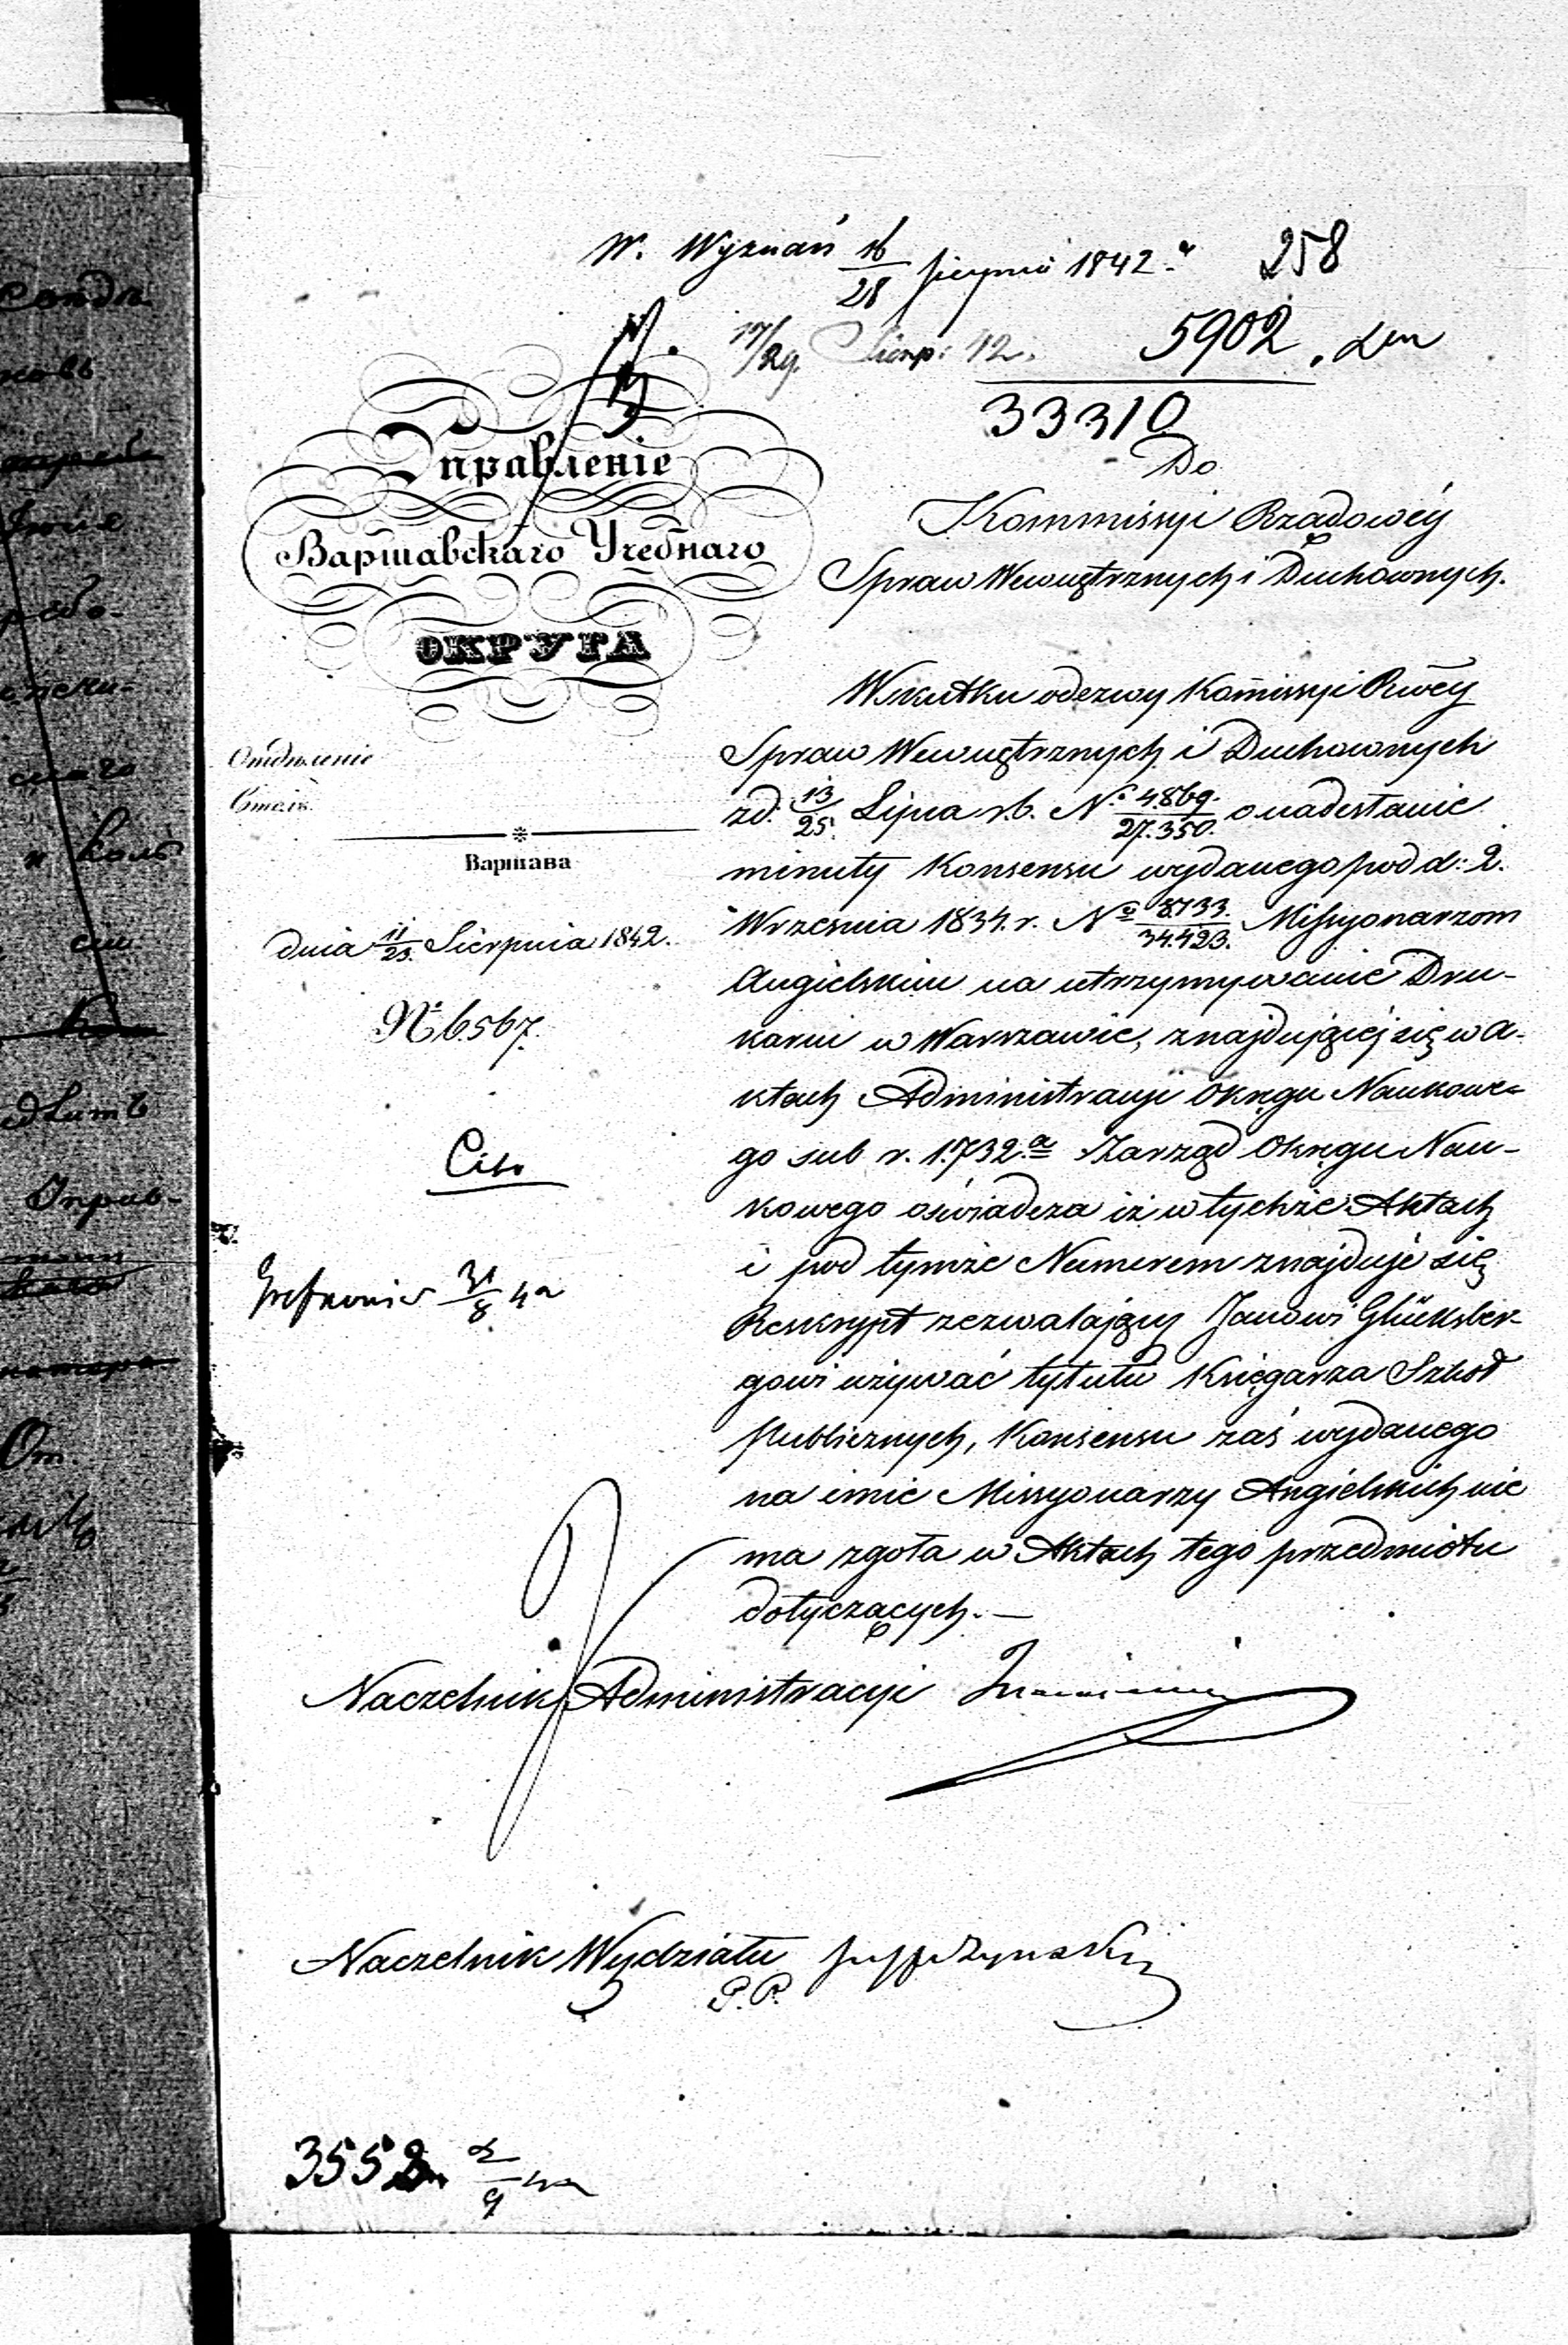 W. Wyznań 16/28 sierpnia 1842 258
17/29 Sierp: 42. 5902.
33310
Управленіе
Варшавскаго Учебнаго
ОКРУГА
Отдѣленіе
Столъ
Варшава
dnia 11/23. Sierpnia 1842.
Nr 6567.
Cito
31/8 42
Do
Kommissyi Rządowéy
Spraw Wewnętrznych i Duchownych.
Wskutku odezwy Kom̄issyi Rwéy
Spraw Wewnętrznych i Duchownych
zd. 13/25. Lipca r.b. No 4869./27.350. o nadesłanie
minuty Konsensu wydanego pod d: 2.
Września 1834. r. No 8733./34.423. Missyonarzom
Angielskim na utrzymywanie Dru-
karni w Warszawie, znajdującéj się w a-
ktach Administracyi Okręgu Naukowe-
go sub n. 1732.a Zarząd Okręgu Nau-
kowego oświadcza iż w tychże Aktach
i pod tymże Numerem znajduje się
Reskrypt zezwalający Janowi Glücksber-
gowi używać tytułu Księgarza Szkół
Publicznych, Konsensu zaś wydanego
na imie Missyonarzy Angielskich nie
ma zgoła w Aktach tego przedmiotu
dotyczących. —
Naczelnik Administracyi
Naczelnik Wydziału
P. P.
3552 2/9 42